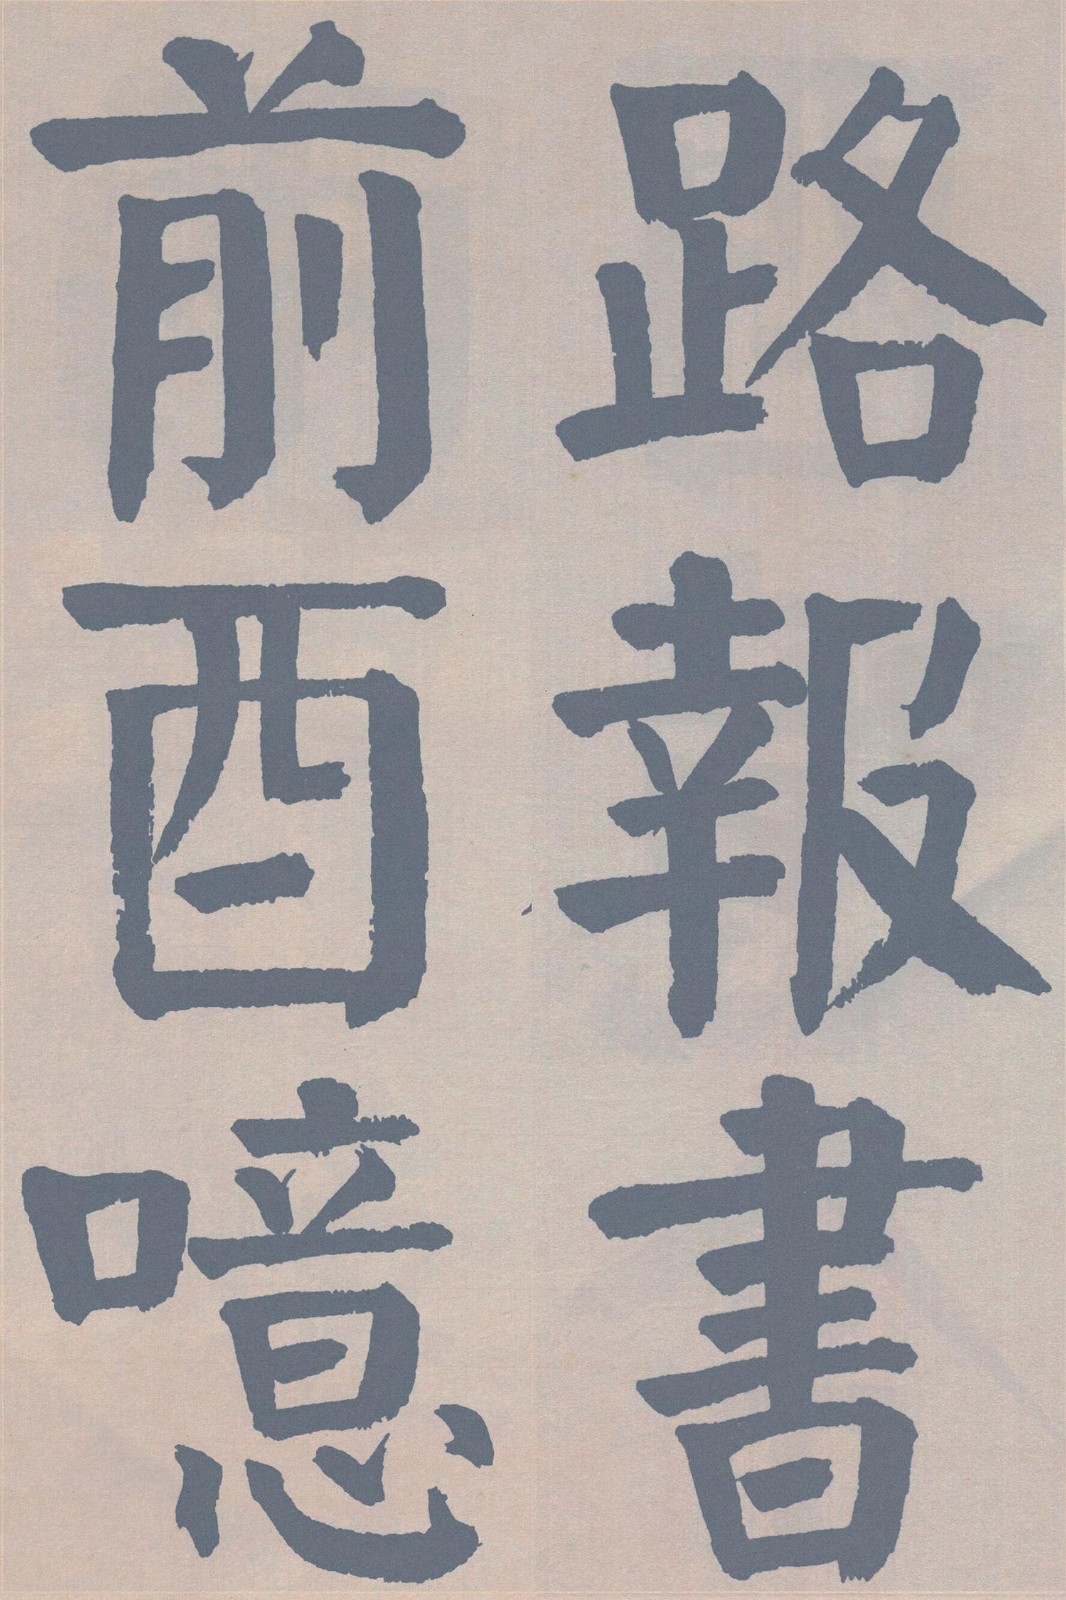 路報書
前酉噫